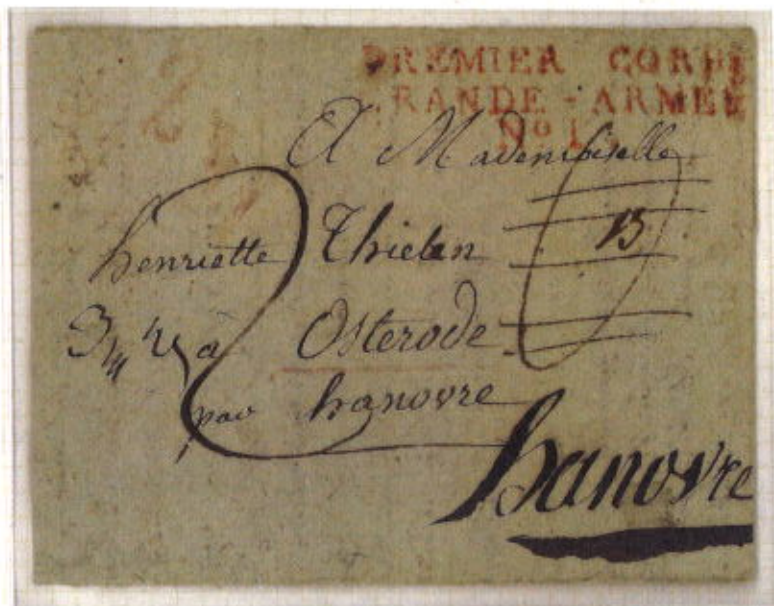 PREMIER CORPS
RANDE - ARMEE
No 1
A Mademoiselle
henriette Thielen
13
a Osterode
par hanovre
hanovre